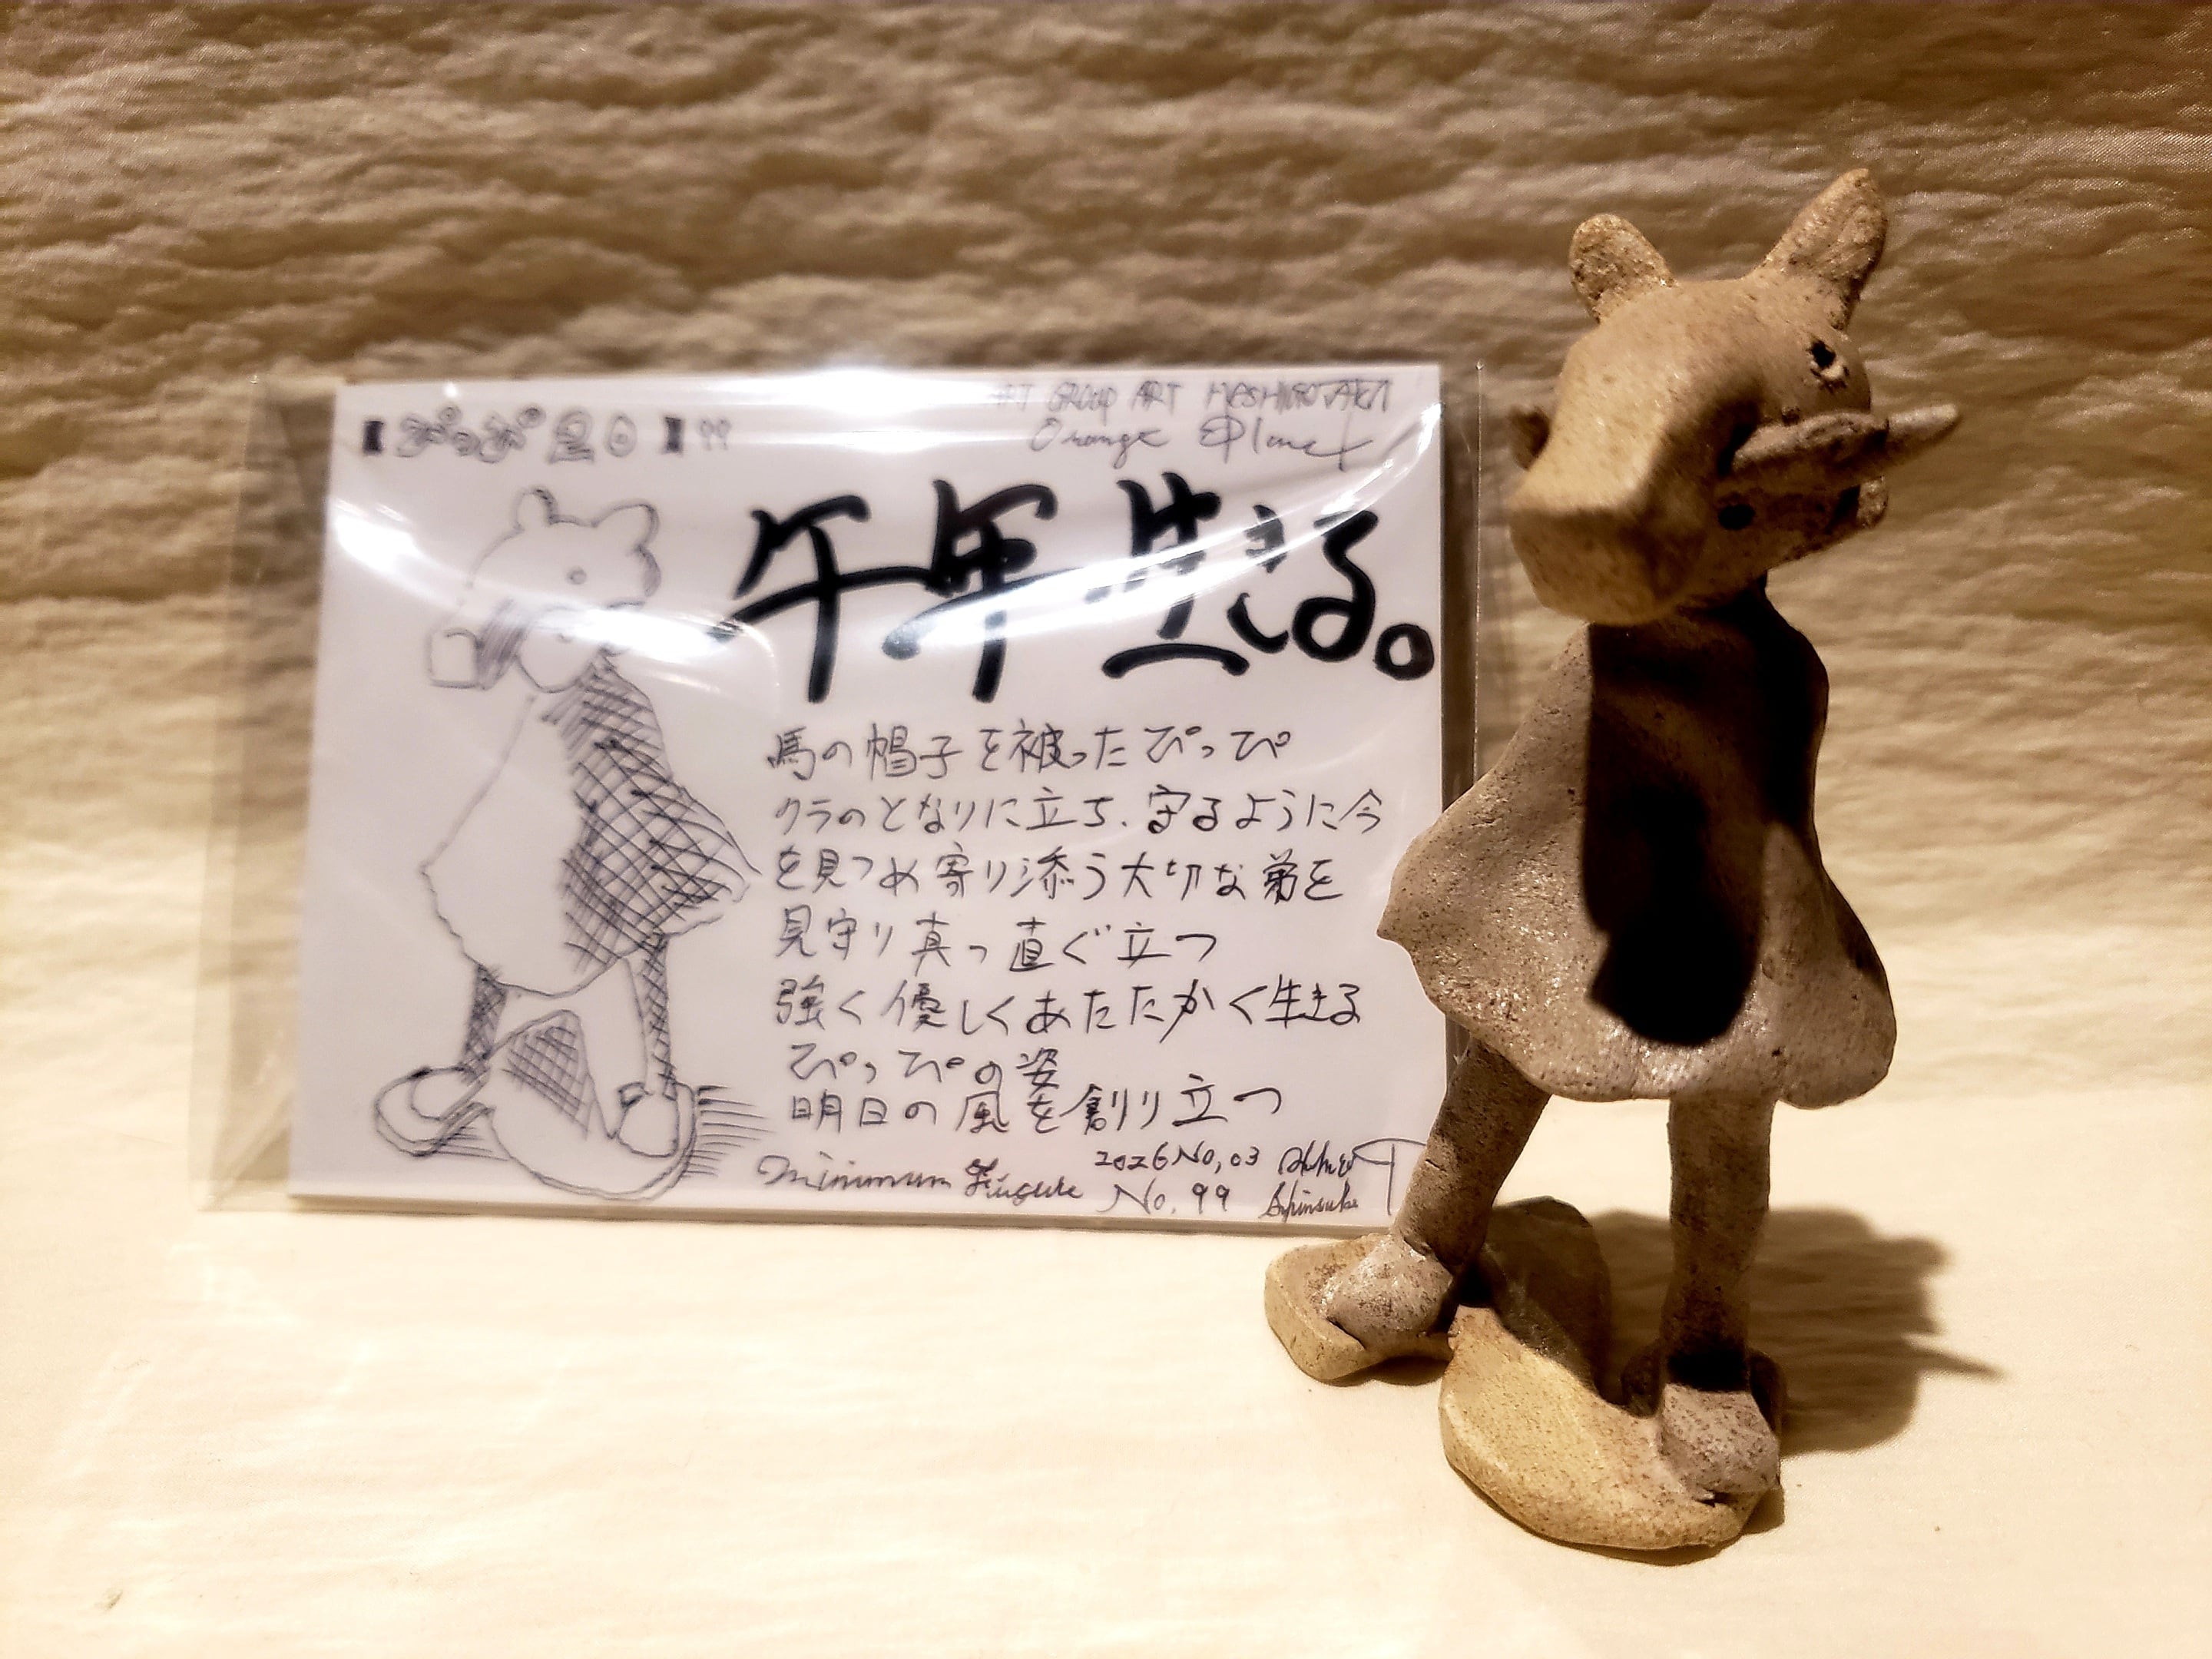 【ぴっぴ】99
GROUP ART HASHIGOTAKA
Orange Planet
午年 生きる。
馬の帽子を被ったぴっぴ
クラのとなりに立ち、守るように今
を見つめ寄り添う大切な弟を
見守り真っ直ぐ立つ
強く優しくあたたかく生きる
ぴっぴの姿
明日の風を創り立つ
2026 No,03
minimum Figure No.99 Shinsuke